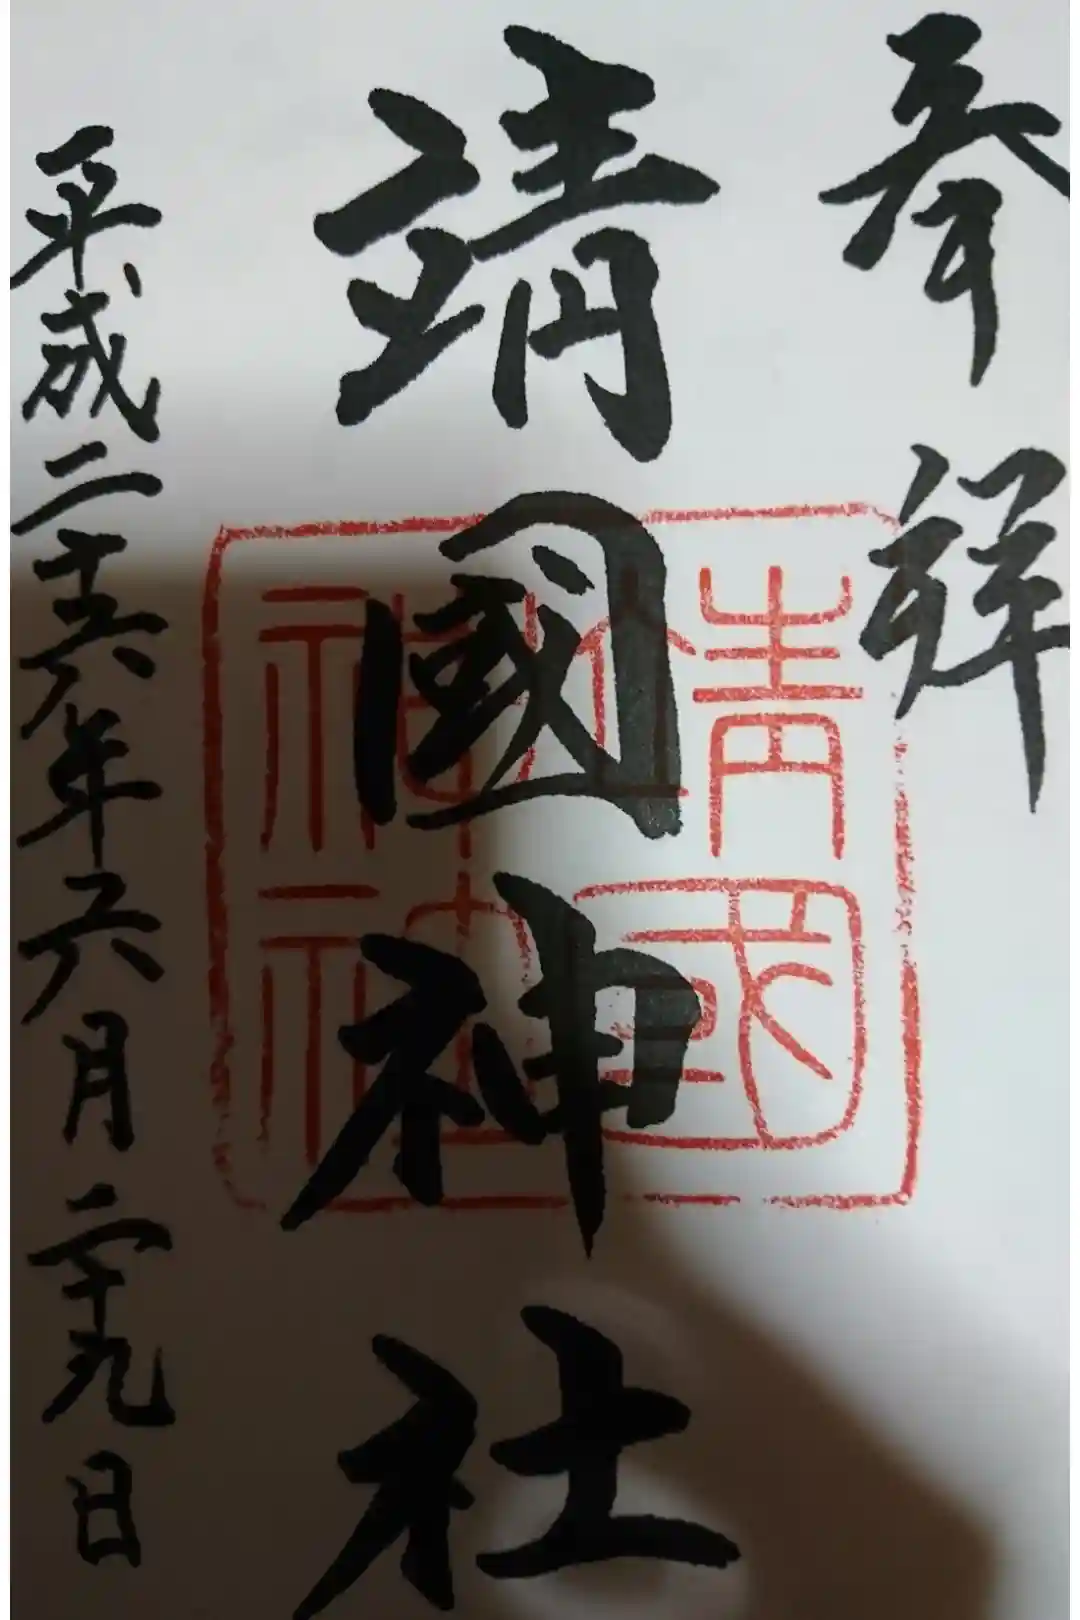 奉拝
靖國神社
平成二十六年六月二十九日
靖國
神社